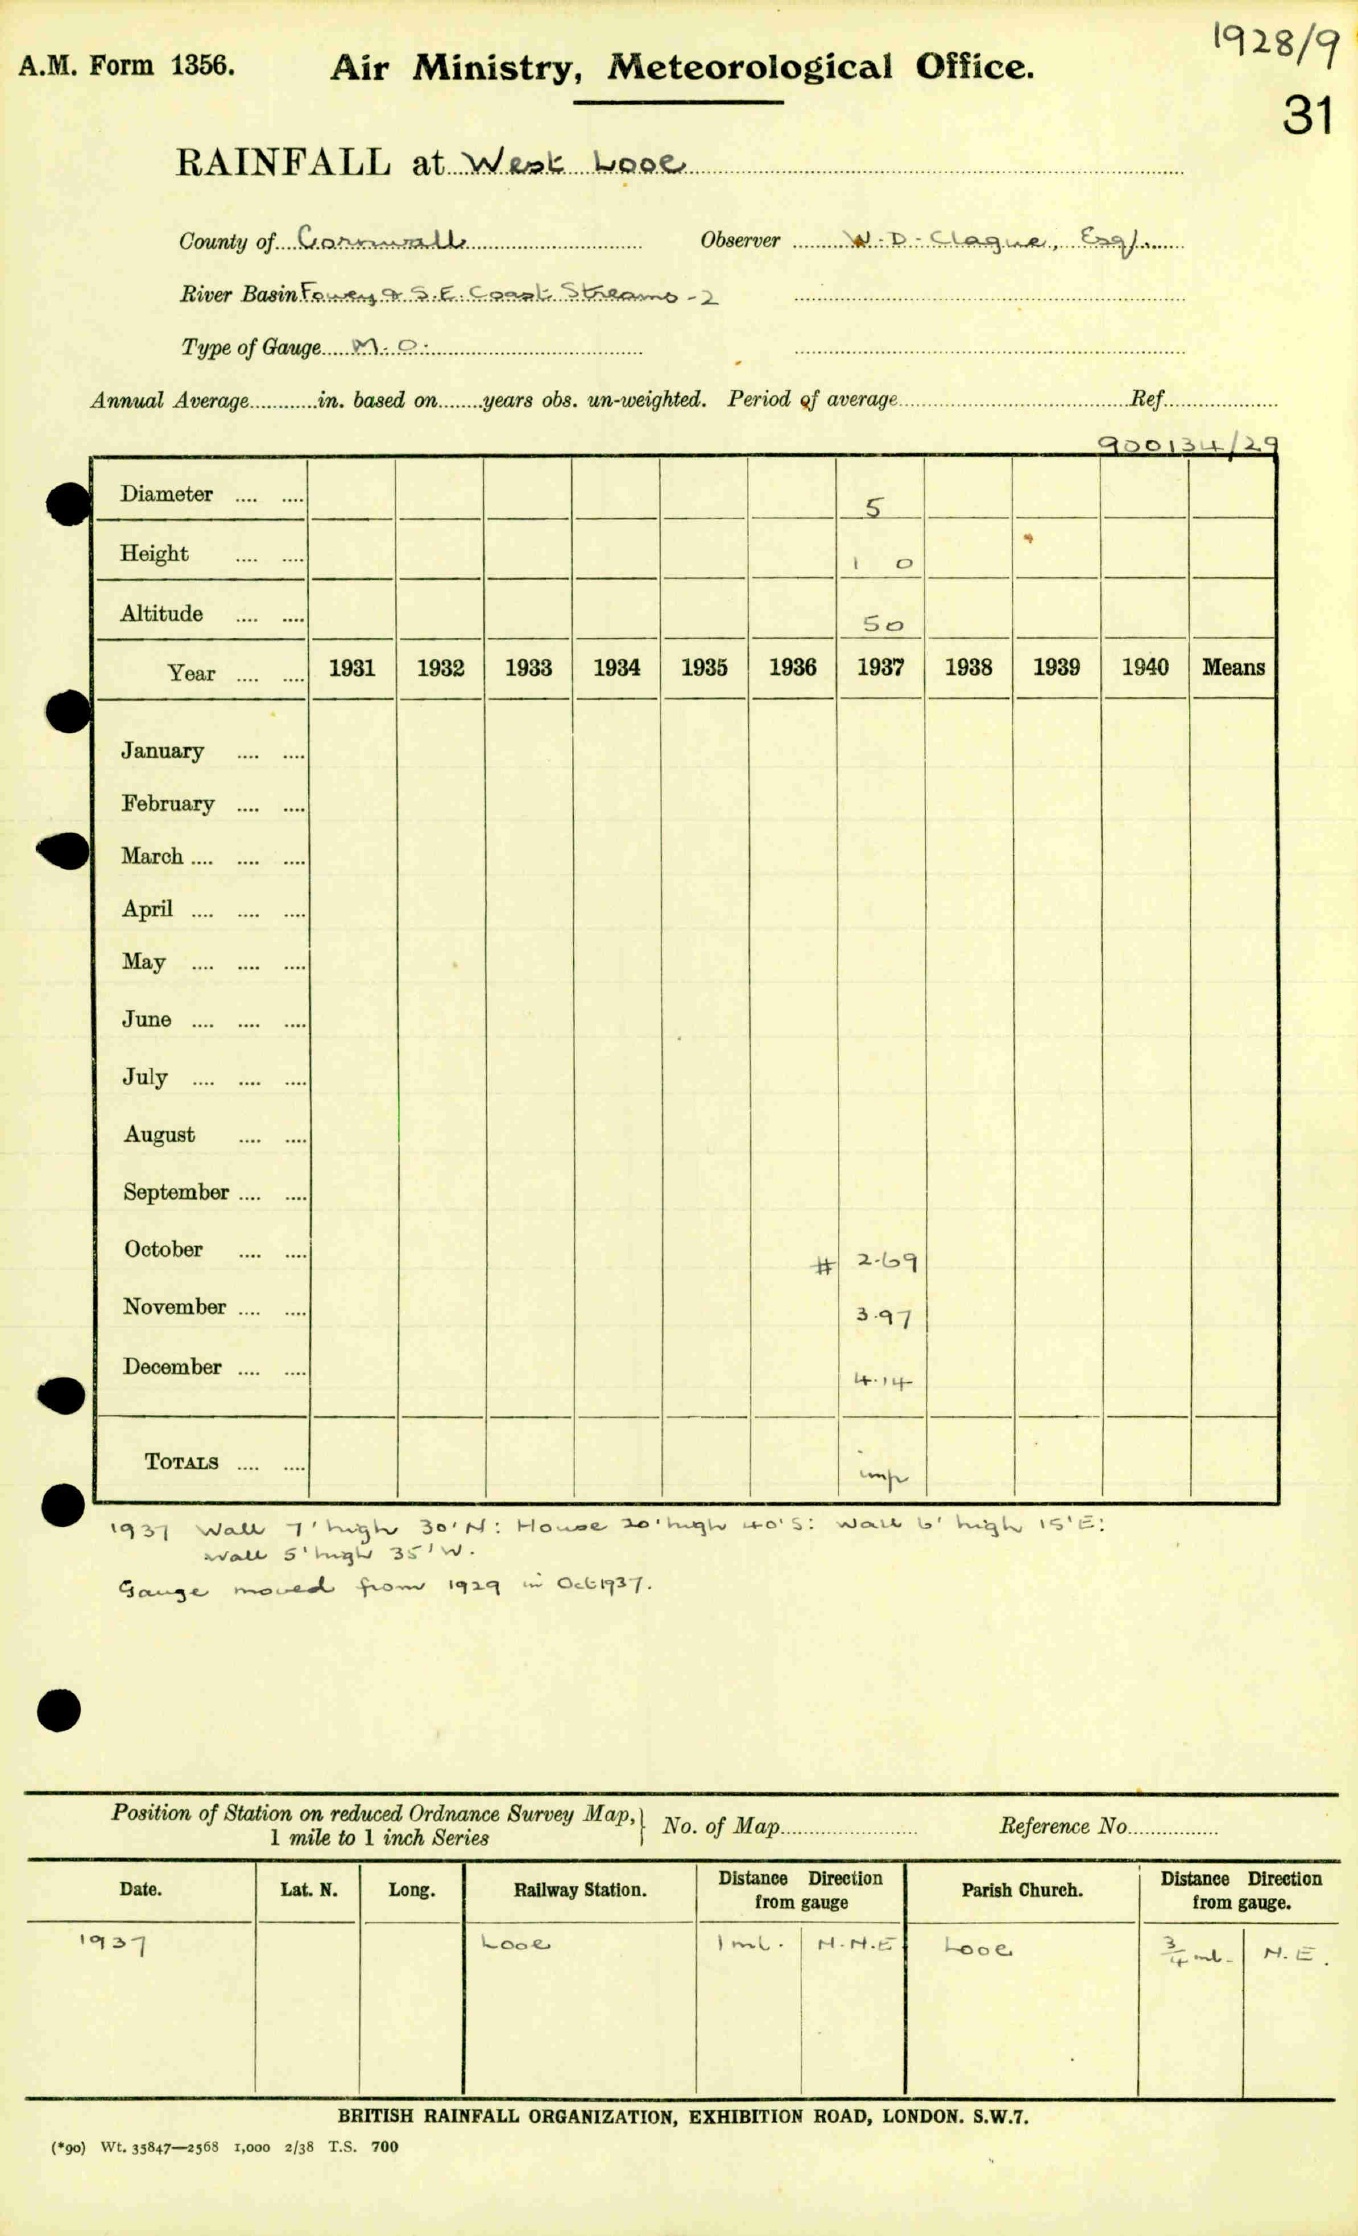 1928/9
A.M. Form 1356. Air Ministry, Meteorological Office.
31
RAINFALL at West Looe
County of Cornwall Observer W. D. Clague, Esq/.
River Basin Fowey & S.E. Coast Streams -2
Type of Gauge M.O.
Annual Average............in. based on........years obs. un-weighted. Period of average........................Ref....................
900134/29
Diameter .... .... 5
Height .... .... 1 0
Altitude .... .... 50
Year .... .... 1931 1932 1933 1934 1935 1936 1937 1938 1939 1940 Means
January .... ....
February .... ....
March .... .... ....
April .... .... ....
May .... .... ....
June .... .... ....
July .... .... ....
August .... ....
September .... ....
October .... .... # 2.69
November .... .... 3.97
December .... .... 4.14
TOTALS .... .... imp
1937 Wall 7' high 30' N: House 20' high 40' S: Wall 6' high 15' E:
Wall 5' high 35' W.
Gauge moved from 1929 in Oct 1937.
Position of Station on reduced Ordnance Survey Map, } No. of Map........................ Reference No................
1 mile to 1 inch Series
Date. Lat. N. Long. Railway Station. Distance Direction from gauge Parish Church. Distance Direction from gauge.
1937 Looe 1 ml. N.N.E Looe 3/4 ml. N.E.
BRITISH RAINFALL ORGANIZATION, EXHIBITION ROAD, LONDON. S.W.7.
(*90) Wt. 35847—2568 1,000 2/38 T.S. 700